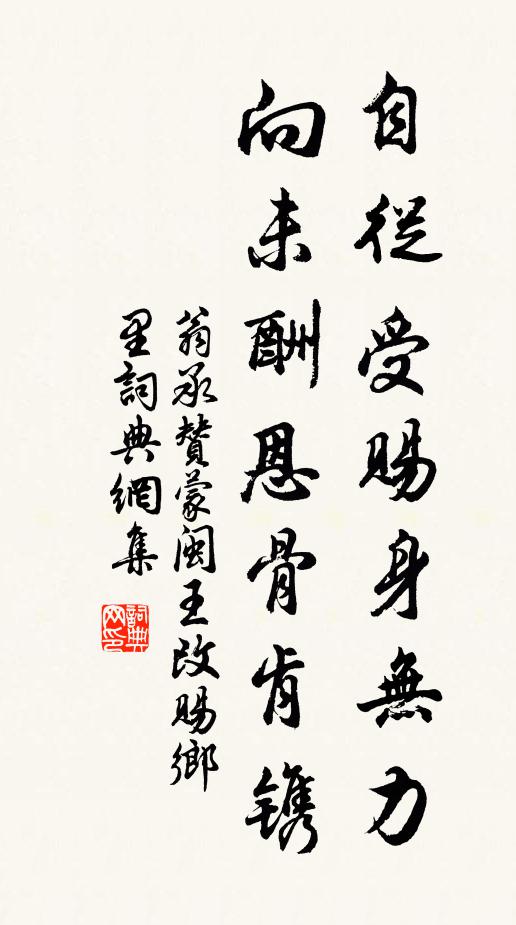 自從受賜身無力
向未酬恩骨肯镌
翁承贊蒙閩王改賜鄉
里詞典網集
詞典网印